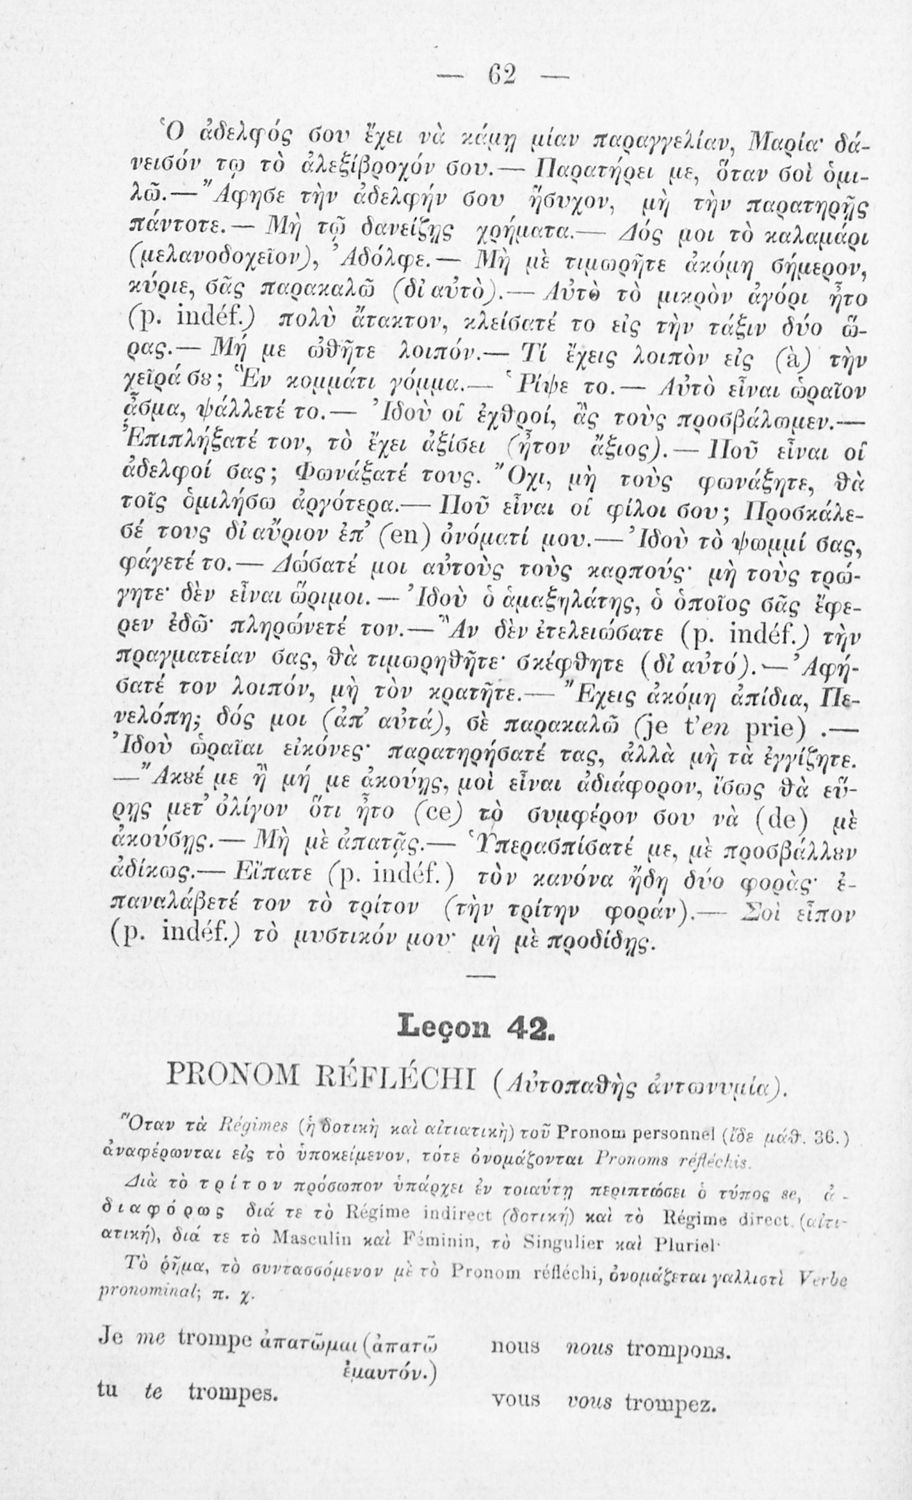 — 62 —
Ὁ ἀδελφός σου ἔχει νὰ κάμῃ μίαν παραγγελίαν, Μαρία· δά-
νεισόν τῳ τὸ ἀλεξίβροχόν σου.— Παρατήρει με, ὅταν σοὶ ὁμι-
λῶ.— Ἄφησε τὴν ἀδελφήν σου ἥσυχον, μὴ τὴν παρατηρῇς
πάντοτε.— Μὴ τῷ δανείζῃς χρήματα.— Δός μοι τὸ καλαμάρι
(μελανοδοχεῖον), Ἀδόλφε.— Μὴ μὲ τιμωρῆτε ἀκόμη σήμερον,
κύριε, σᾶς παρακαλῶ (δι αὐτὸ).— Αὐτὸ τὸ μικρὸν ἀγόρι ἦτο
(p. indéf.) πολὺ ἄτακτον, κλείσατέ το εἰς τὴν τάξιν δύο ὥ-
ρας.— Μή με ὠθῆτε λοιπόν.— Τί ἔχεις λοιπὸν εἰς (à) τὴν
χεῖρά σȣ; Ἓν κομμάτι γόμμα.— Ῥίψε το.— Αὐτὸ εἶναι ὡραῖον
ᾆσμα, ψάλλετέ το.— Ἰδοὺ οἱ ἐχθροί, ἂς τοὺς προσβάλωμεν.—
Ἐπιπλήξατέ τον, τὸ ἔχει ἀξίσει (ἦτον ἄξιος).— Ποῦ εἶναι οἱ
ἀδελφοί σας; Φωνάξατέ τους. Ὄχι, μὴ τοὺς φωνάξητε, θὰ
τοῖς ὁμιλήσω ἀργότερα.— Ποῦ εἶναι οἱ φίλοι σου; Προσκάλε-
σέ τους δι αὔριον ἐπ' (en) ὀνόματί μου.— Ἰδοὺ τὸ ψωμμί σας,
φάγετέ το.— Δώσατέ μοι αὐτοὺς τοὺς καρπούς· μὴ τοὺς τρώ-
γητε· δὲν εἶναι ὥριμοι.— Ἰδοὺ ὁ ἁμαξηλάτης, ὁ ὁποῖος σᾶς ἔφε-
ρεν ἐδῶ· πληρώνετέ τον.— Ἂν δὲν ἐτελειώσατε (p. indéf.) τὴν
πραγματείαν σας, θὰ τιμωρηθῆτε· σκέφθητε (δι αὐτό).— Ἀφή-
σατέ τον λοιπόν, μὴ τὸν κρατῆτε.— Ἔχεις ἀκόμη ἀπίδια, Πη-
νελόπη; δός μοι (ἀπ' αὐτά), σὲ παρακαλῶ (je t'en prie) .—
Ἰδοὺ ὡραῖαι εἰκόνες· παρατηρήσατέ τας, ἀλλὰ μὴ τὰ ἐγγίζητε.
— Ἄκȣέ με ἢ μή με ἀκούῃς, μοὶ εἶναι ἀδιάφορον, ἴσως θὰ εὕ-
ρῃς μετ' ὀλίγον ὅτι ἦτο (ce) τὸ συμφέρον σου νὰ (de) μὲ
ἀκούσῃς.— Μὴ μὲ ἀπατᾷς.— Ὑπερασπίσατέ με, μὲ προσβάλλȣν
ἀδίκως.— Εἴπατε (p. indéf.) τὸν κανόνα ἤδη δύο φορὰς· ἐ-
παναλάβετέ τον τὸ τρίτον (τὴν τρίτην φοράν).— Σοὶ εἶπον
(p. indéf.) τὸ μυστικόν μου· μὴ μὲ προδίδῃς.
—
Leçon 42.
PRONOM RÉFLÉCHI (Αὐτοπαθὴς ἀντωνυμία).
Ὅταν τὰ Régimes (ἡ δοτικὴ καὶ αἰτιατικὴ) τοῦ Pronom personnel (ἴδε μάθ. 36.)
ἀναφέρωνται εἰς τὸ ὑποκείμενον, τότε ὀνομάζονται Pronoms réfléchis.
Διὰ τὸ τρίτον πρόσωπον ὑπάρχει ἐν τοιαύτῃ περιπτώσει ὁ τύπος se, ἀ-
διαφόρως διά τε τὸ Régime indirect (δοτική) καὶ τὸ Régime direct (αἰτι-
ατική), διά τε τὸ Masculin καὶ Féminin, τὸ Singulier καὶ Pluriel·
Τὸ ῥῆμα, τὸ συντασσόμενον μὲ τὸ Pronom réfléchi, ὀνομάζεται γαλλιστὶ Verbe
pronominal; π. χ.
Je me trompe ἀπατῶμαι (ἀπατῶ
ἐμαυτόν.)
tu te trompes.
nous nous trompons.
vous vous trompez.